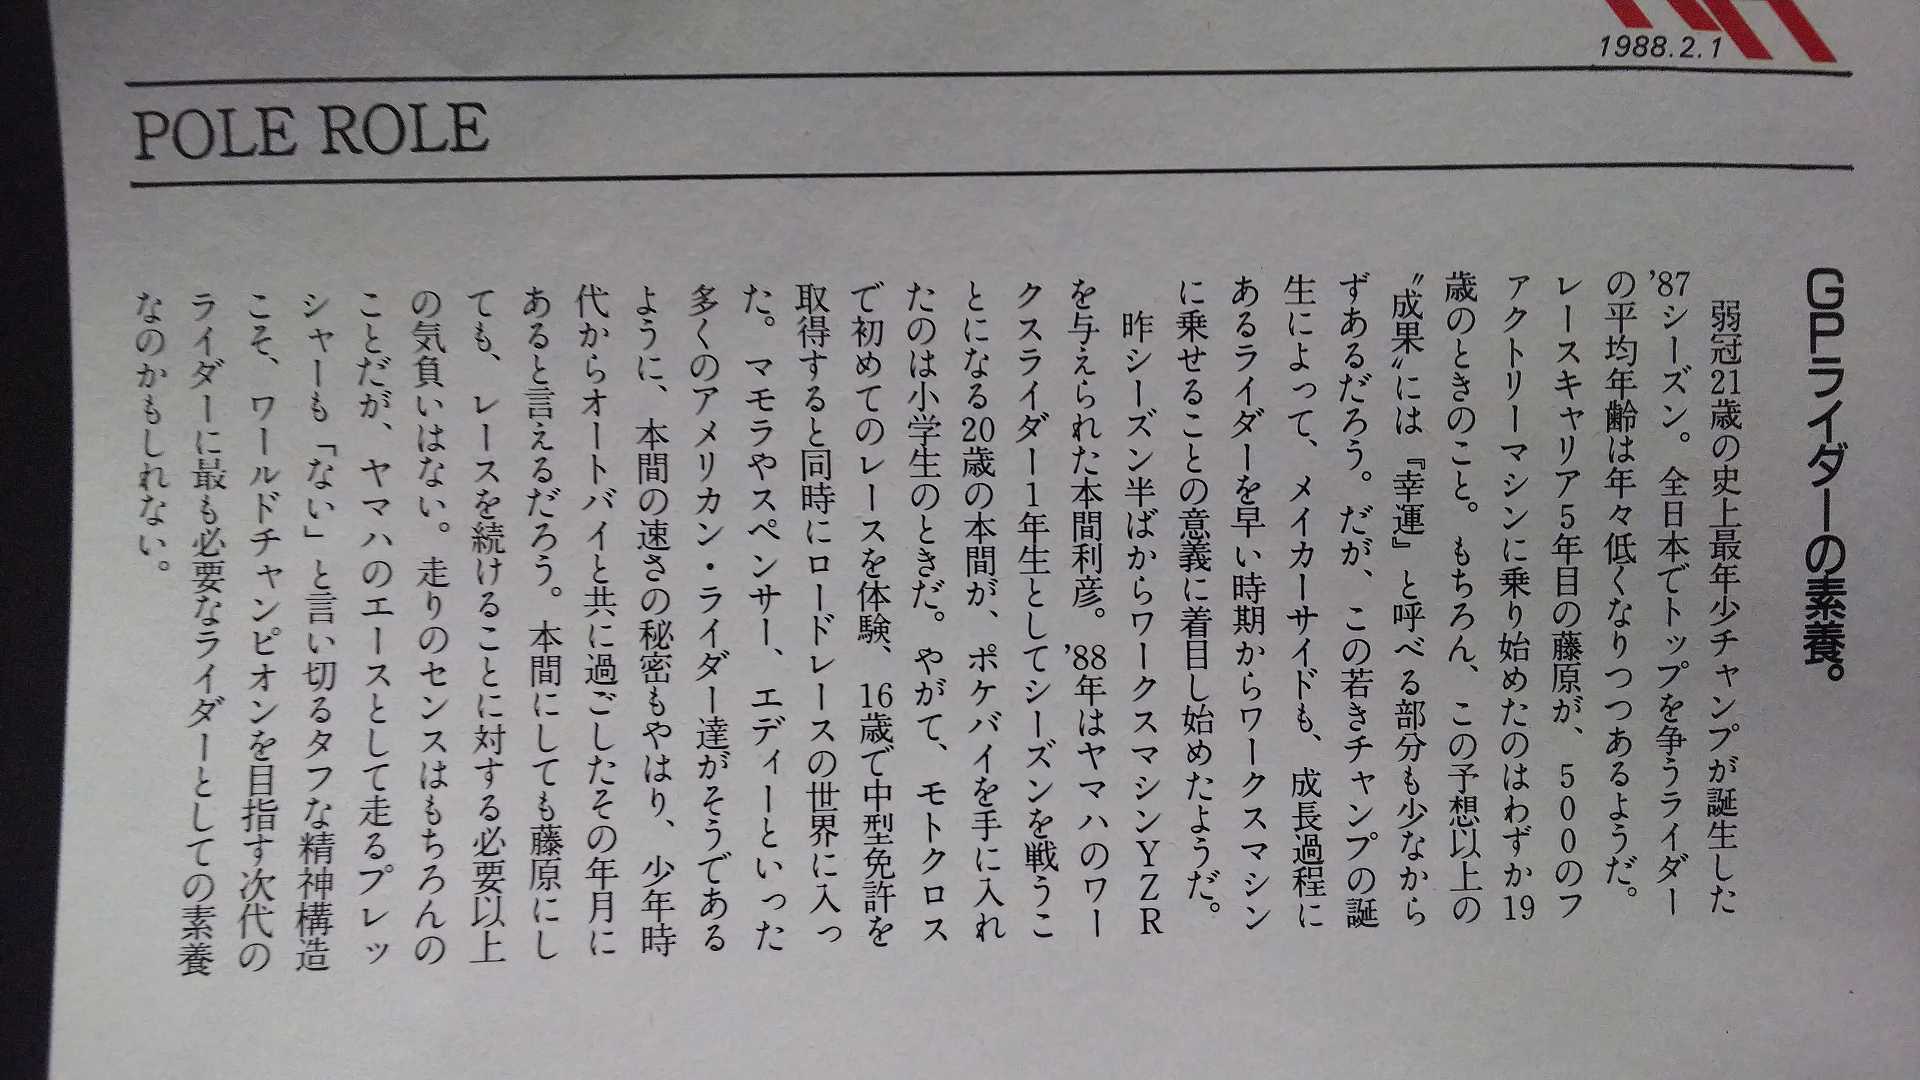 1988.2.1
POLE ROLE
GPライダーの素養。
弱冠21歳の史上最年少チャンプが誕生した
'87シーズン。全日本でトップを争うライダー
の平均年齢は年々低くなりつつあるようだ。
レースキャリア5年目の藤原が、500のフ
ァクトリーマシンに乗り始めたのはわずか19
歳のときのこと。もちろん、この予想以上の
〝成果〟には『幸運』と呼べる部分も少なから
ずあるだろう。だが、この若きチャンプの誕
生によって、メイカーサイドも、成長過程に
あるライダーを早い時期からワークスマシン
に乗せることの意義に着目し始めたようだ。
昨シーズン半ばからワークスマシンYZR
を与えられた本間利彦。'88年はヤマハのワー
クスライダー1年生としてシーズンを戦うこ
とになる20歳の本間が、ポケバイを手に入れ
たのは小学生のときだ。やがて、モトクロス
で初めてのレースを体験、16歳で中型免許を
取得すると同時にロードレースの世界に入っ
た。マモラやスペンサー、エディーといった
多くのアメリカン・ライダー達がそうである
ように、本間の速さの秘密もやはり、少年時
代からオートバイと共に過ごしたその年月に
あると言えるだろう。本間にしても藤原にし
ても、レースを続けることに対する必要以上
の気負いはない。走りのセンスはもちろんの
ことだが、ヤマハのエースとして走るプレッ
シャーも「ない」と言い切るタフな精神構造
こそ、ワールドチャンピオンを目指す次代の
ライダーに最も必要なライダーとしての素養
なのかもしれない。